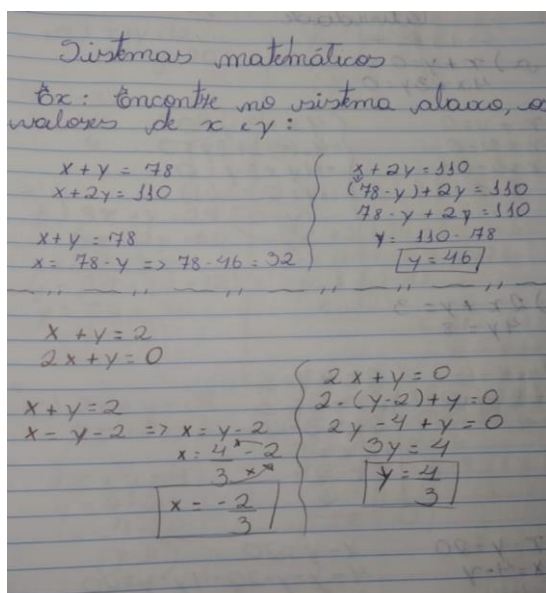 Sistemas matemáticos
Ex: Encontre no sistema abaixo, os
valores de x e y:
x + y = 78
x + 2y = 110
x + y = 78
x = 78 - y => 78 - 46 = 32
x + 2y = 110
(78 - y) + 2y = 110
78 - y + 2y = 110
y = 110 - 78
y = 46
x + y = 2
2x + y = 0
x + y = 2
x - y - 2 => x = y - 2
x = 4/3 - 2
x = -2/3
2x + y = 0
2 · (y - 2) + y = 0
2y - 4 + y = 0
3y = 4
y = 4/3